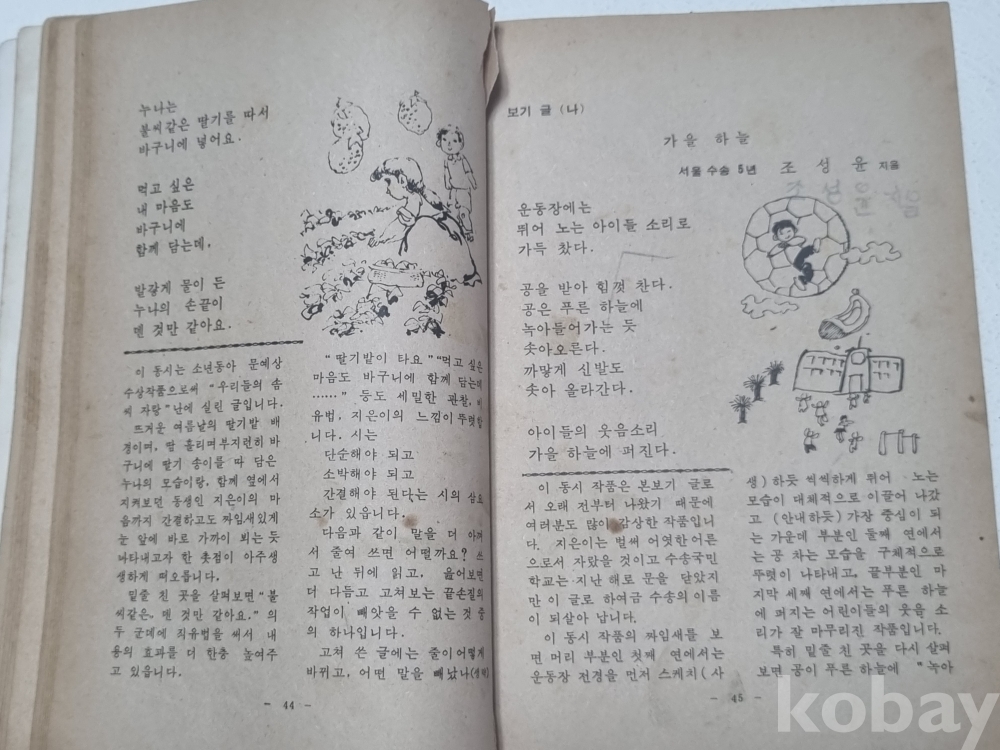 누나는
불씨같은 딸기를 따서
바구니에 넣어요.
먹고 싶은
내 마음도
바구니에
함께 담는데,
발갛게 물이 든
누나의 손끝이
덴 것만 같아요.
이 동시는 소년동아 문예상
수상작품으로써 "우리들의 솜
씨 자랑"난에 실린 글입니다.
뜨거운 여름날의 딸기밭 배
경이며, 땀 흘리며부지런히 바
구니에 딸기 송이를 따 담은
누나의 모습이랑, 함께 옆에서
지켜보던 동생인 지은이의 마
음까지 간결하고도 짜임새있게
눈 앞에 바로 가까이 뵈는 듯
나타내고자 한 촛점이 아주생
생하게 떠오릅니다.
밑줄 친 곳을 살펴보면"불
씨같은, 덴 것만 같아요."의
두 군데에 직유법을 써서 내
용의 효과를 더 한층 높여주
고 있읍니다.
"딸기밭이 타요""먹고 싶은
마음도 바구니에 함께 담는데
……" 등도 세밀한 관찰,
유법, 지은이의 느낌이뚜렷합
니다. 시는
단순해야 되고
소박해야 되고
간결해야 된다는 시의 삼요
소가 있읍니다.
다음과 같이 말을 더 아껴
서 줄여 쓰면 어떨까요? 쓰
고 난 뒤에 읽고, 읊어보면
더 다듬고 고쳐보는 끝손질의
작업이 빼앗을 수 없는것 중
의 하나입니다.
고쳐 쓴 글에는 줄이어떻게
바뀌고, 어떤 말을 빼났나(생략)
- 44 -
보기 글 (나)
가을 하늘
서울 수송 5년 조 성 윤 지음
조 성 윤
운동장에는
뛰어 노는 아이들 소리로
가득 찼다.
공을 받아 힘껏 찬다.
공은 푸른 하늘에
녹아들어가는 듯
솟아오른다.
까맣게 신발도
솟아 올라간다.
아이들의 웃음소리
가을 하늘에 퍼진다.
이 동시 작품은 본보기 글로
서 오래 전부터 나왔기 때문에
여러분도 많이 감상한 작품입니
다. 지은이는 벌써 어엿한어른
으로서 자랐을 것이고 수송국민
학교는 지난 해로 문을 닫았지
만 이 글로 하여금 수송의이름
이 되살아 납니다.
이 동시 작품의 짜임새를 보
면 머리 부분인 첫째 연에서는
운동장 전경을 먼저 스케치(사
생)하듯 씩씩하게 뛰어 노는
모습이 대체적으로 이끌어 나갔
고 (안내하듯)가장 중심이 되
는 가운데 부분인 둘째 연에서
는 공 차는 모습을 구체적으로
뚜렷이 나타내고, 끝부분인 마
지막 세째 연에서는 푸른 하늘
에 퍼지는 어린이들의 웃음 소
리가 잘 마무리진 작품입니다.
특히 밑줄 친 곳을 다시 살펴
보면 공이 푸른 하늘에 "녹아
- 45 -
kobay